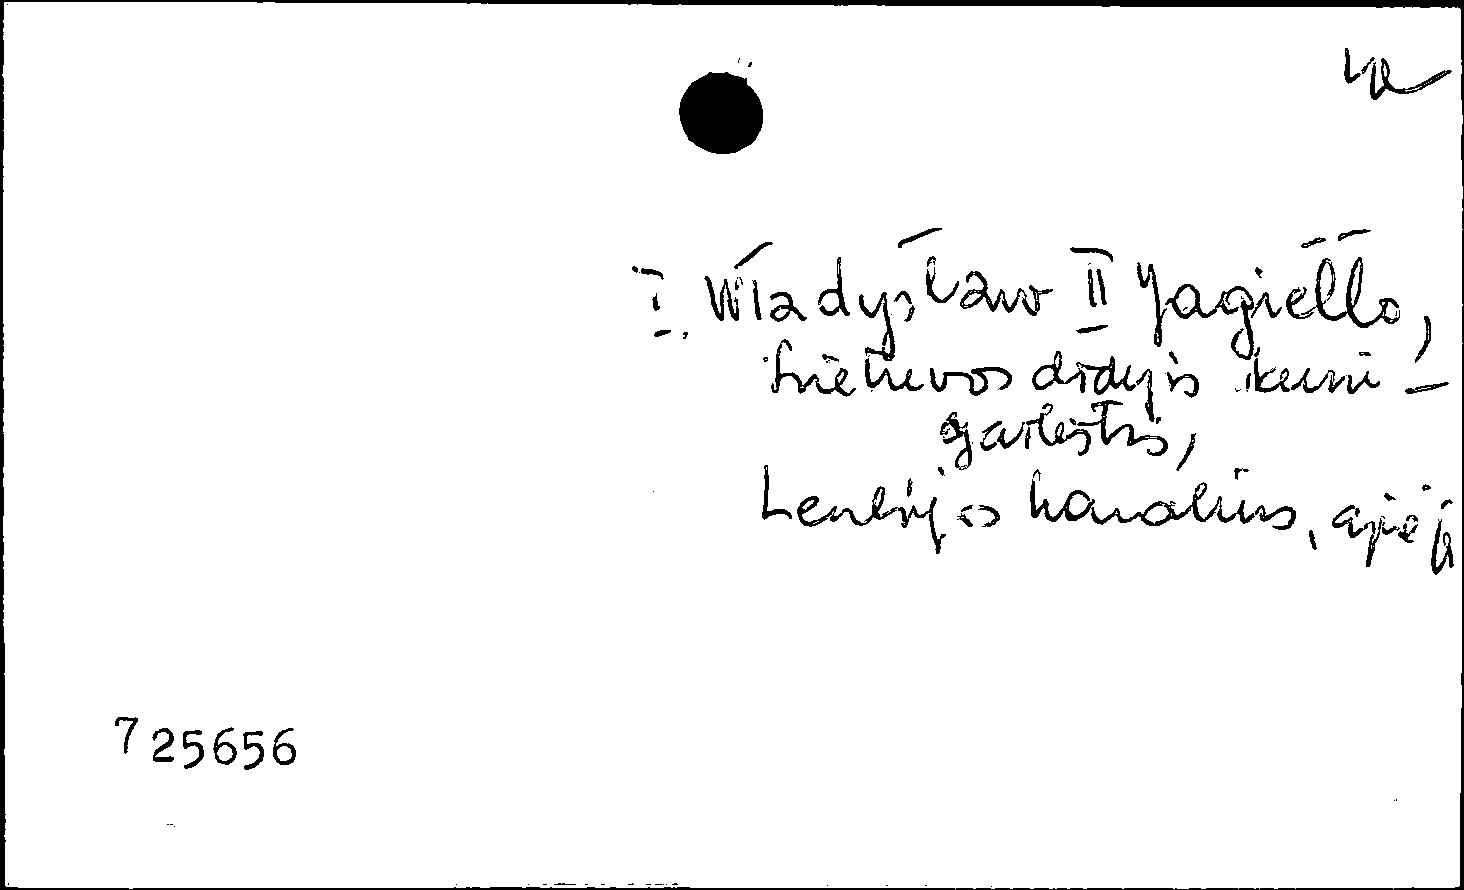 I. Władysław II Jagiełło,
Lietuvos didysis kuni-
gaikštis,
Lenkijos karalius, apie jį
725656